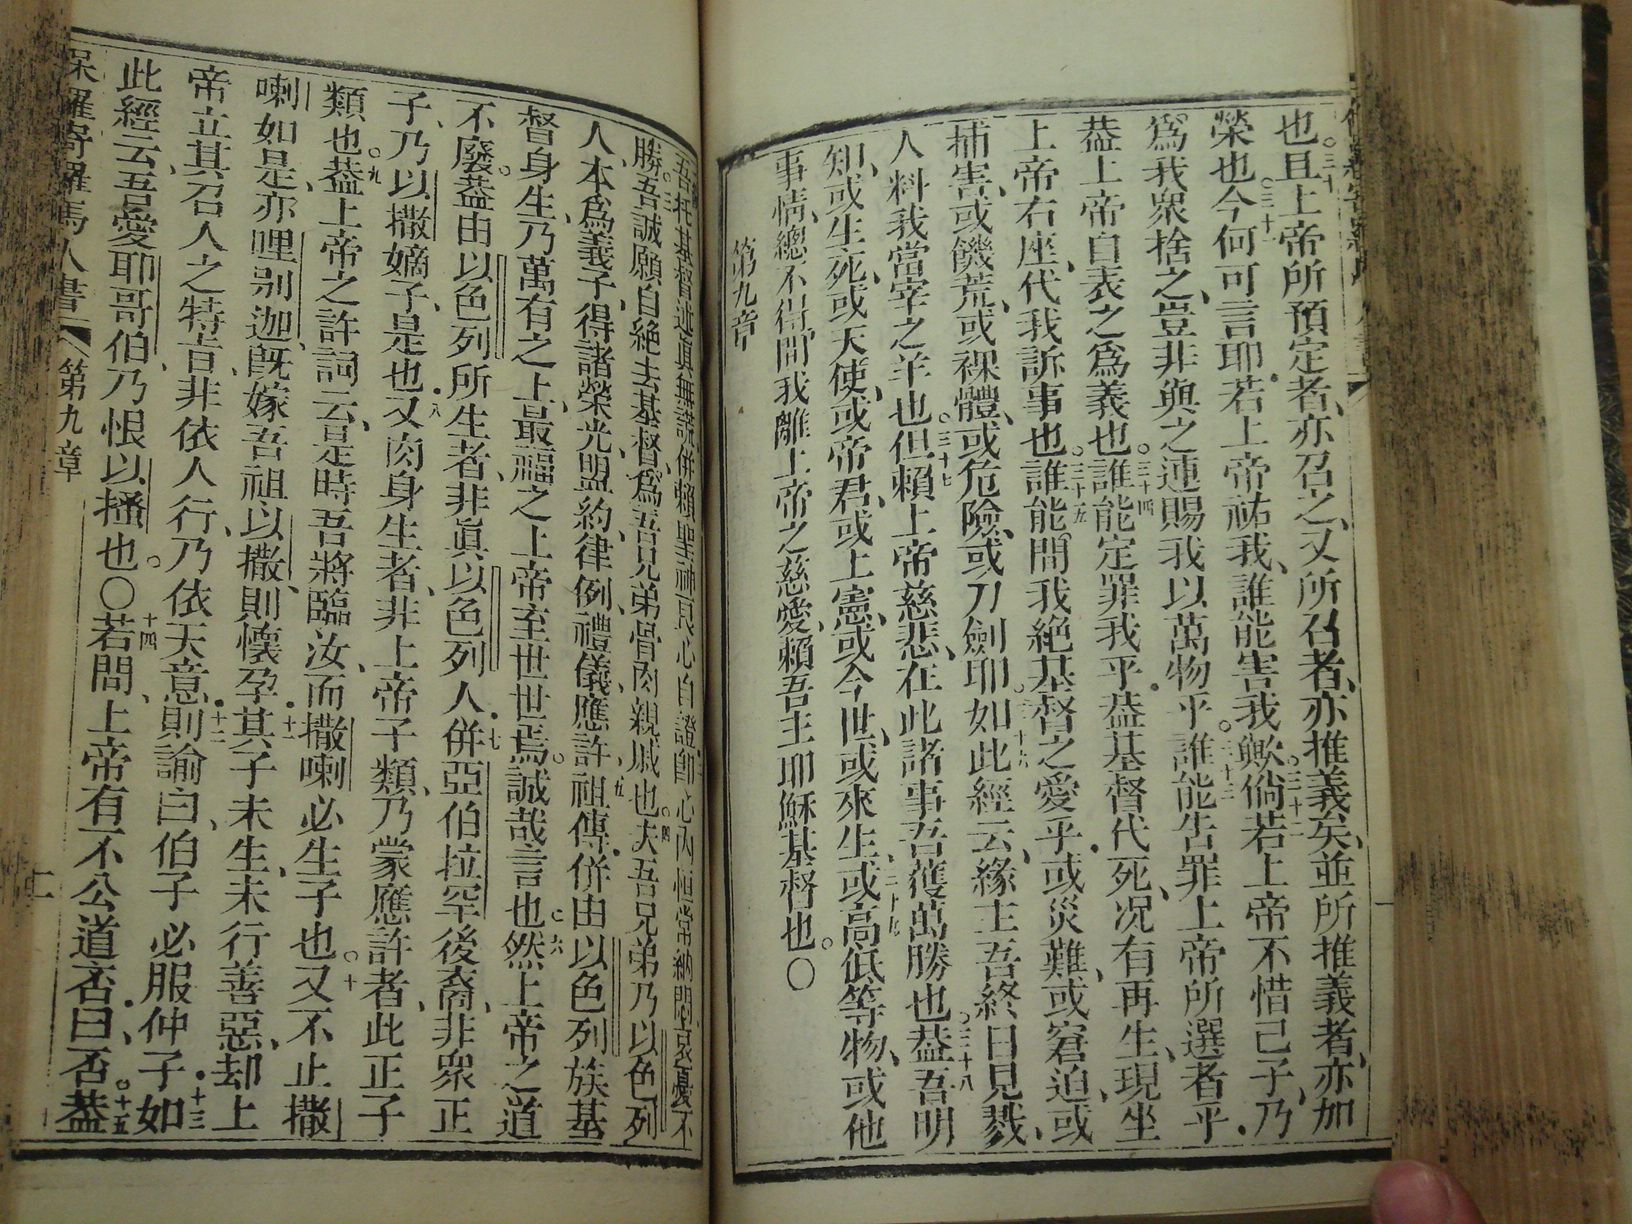 也。三十且上帝所預定者、亦召之、又所召者、亦推義矣、並所推義者、亦加
榮也。三十一今何可言耶、若上帝祐我、誰能害我歟。三十二倘若上帝不惜己子、乃
為我眾捨之、豈非與之連賜我以萬物乎。三十三誰能告罪上帝所選者乎、
葢上帝自表之為義也。三十四誰能定罪我乎、葢基督代死、况有再生、現坐
上帝右座、代我訴事也。三十五誰能間我絕基督之愛乎、或災難、或窘迫、或
捕害、或饑荒、或裸體、或危險、或刀劍耶。三十六如此經云、緣主吾終日見戮、
人料我當宰之羊也。三十七但賴上帝慈悲、在此諸事吾獲萬勝也。三十八葢吾明
知、或生死、或天使、或帝君、或上憲、或今世、或來生、三十九或高低等物、或他
事情、總不得間我離上帝之慈愛、賴吾主耶穌基督也。〇
第九章
吾托基督述真無謊、併賴聖神、良心自證、卽心內恒常納悶、哀憂不
勝。三吾誠願自絕去基督、為吾兄弟骨肉親戚也。四夫吾兄弟乃以色列
人、本為義子、得諸榮光、盟約、律例、禮儀、應許、五祖傳、併由以色列族基
督身生、乃萬有之上、最福之上帝至世世焉。誠哉言也。六然上帝之道
不廢。葢由以色列所生者、非真以色列人、七併亞伯拉罕後裔、非眾正
子、乃以撒嫡子、是也。八又肉身生者、非上帝子類、乃蒙應許者、此正子
類也。九葢上帝之許詞云、是時吾將臨汝、而撒喇必生子也。十又不止撒
喇如是、亦哩別迦、既嫁吾祖以撒、則懷孕、十一其子未生、未行善惡、却上
帝立其召人之特旨、非依人行、乃依天意、十二則諭曰、伯子必服仲子、十三如
此經云、吾愛耶哥伯、乃恨以掻也。〇十四若問、上帝有不公道否、曰、否。十五葢
保羅寄羅馬人書 第九章 二